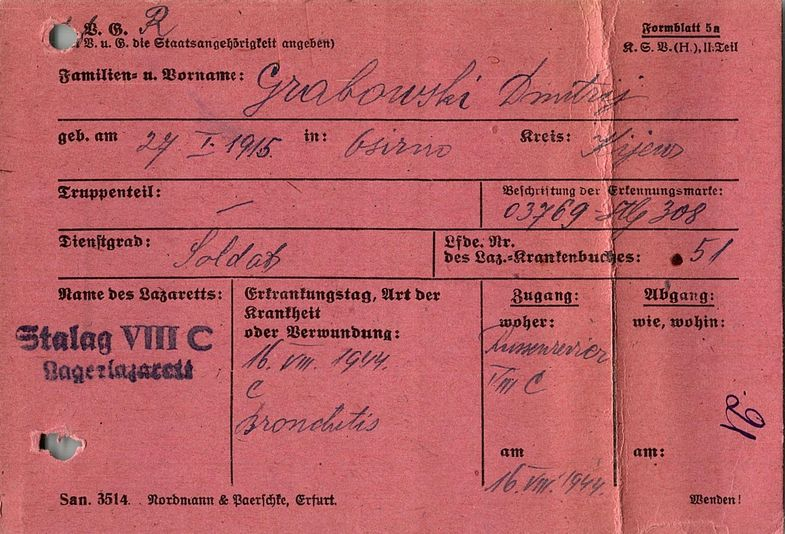 V. G. R
V. u. G. die Staatsangehörigkeit angeben)
Formblatt 5a
K. S. V. (H.), II. Teil
Familien- u. Vorname: Grabowski Dmitrij
geb. am 27 I. 1915. in: Osirno Kreis: Kijew
Truppenteil: –
Beschriftung der Erkennungsmarke:
03769 Stlg 308
Dienstgrad: Soldat
Lfde. Nr.
des Laz.-Krankenbuches: 51
Name des Lazaretts:
Stalag VIII C
Lagerlazarett
Erkrankungstag, Art der
Krankheit
oder Verwundung:
16. VIII. 1944.
C
Bronchitis
Zugang:
woher:
Russenrevier
VIII C
am
16. VIII. 1944.
Abgang:
wie, wohin:
am:
San. 3514. Nordmann & Paerschke, Erfurt.
Wenden!